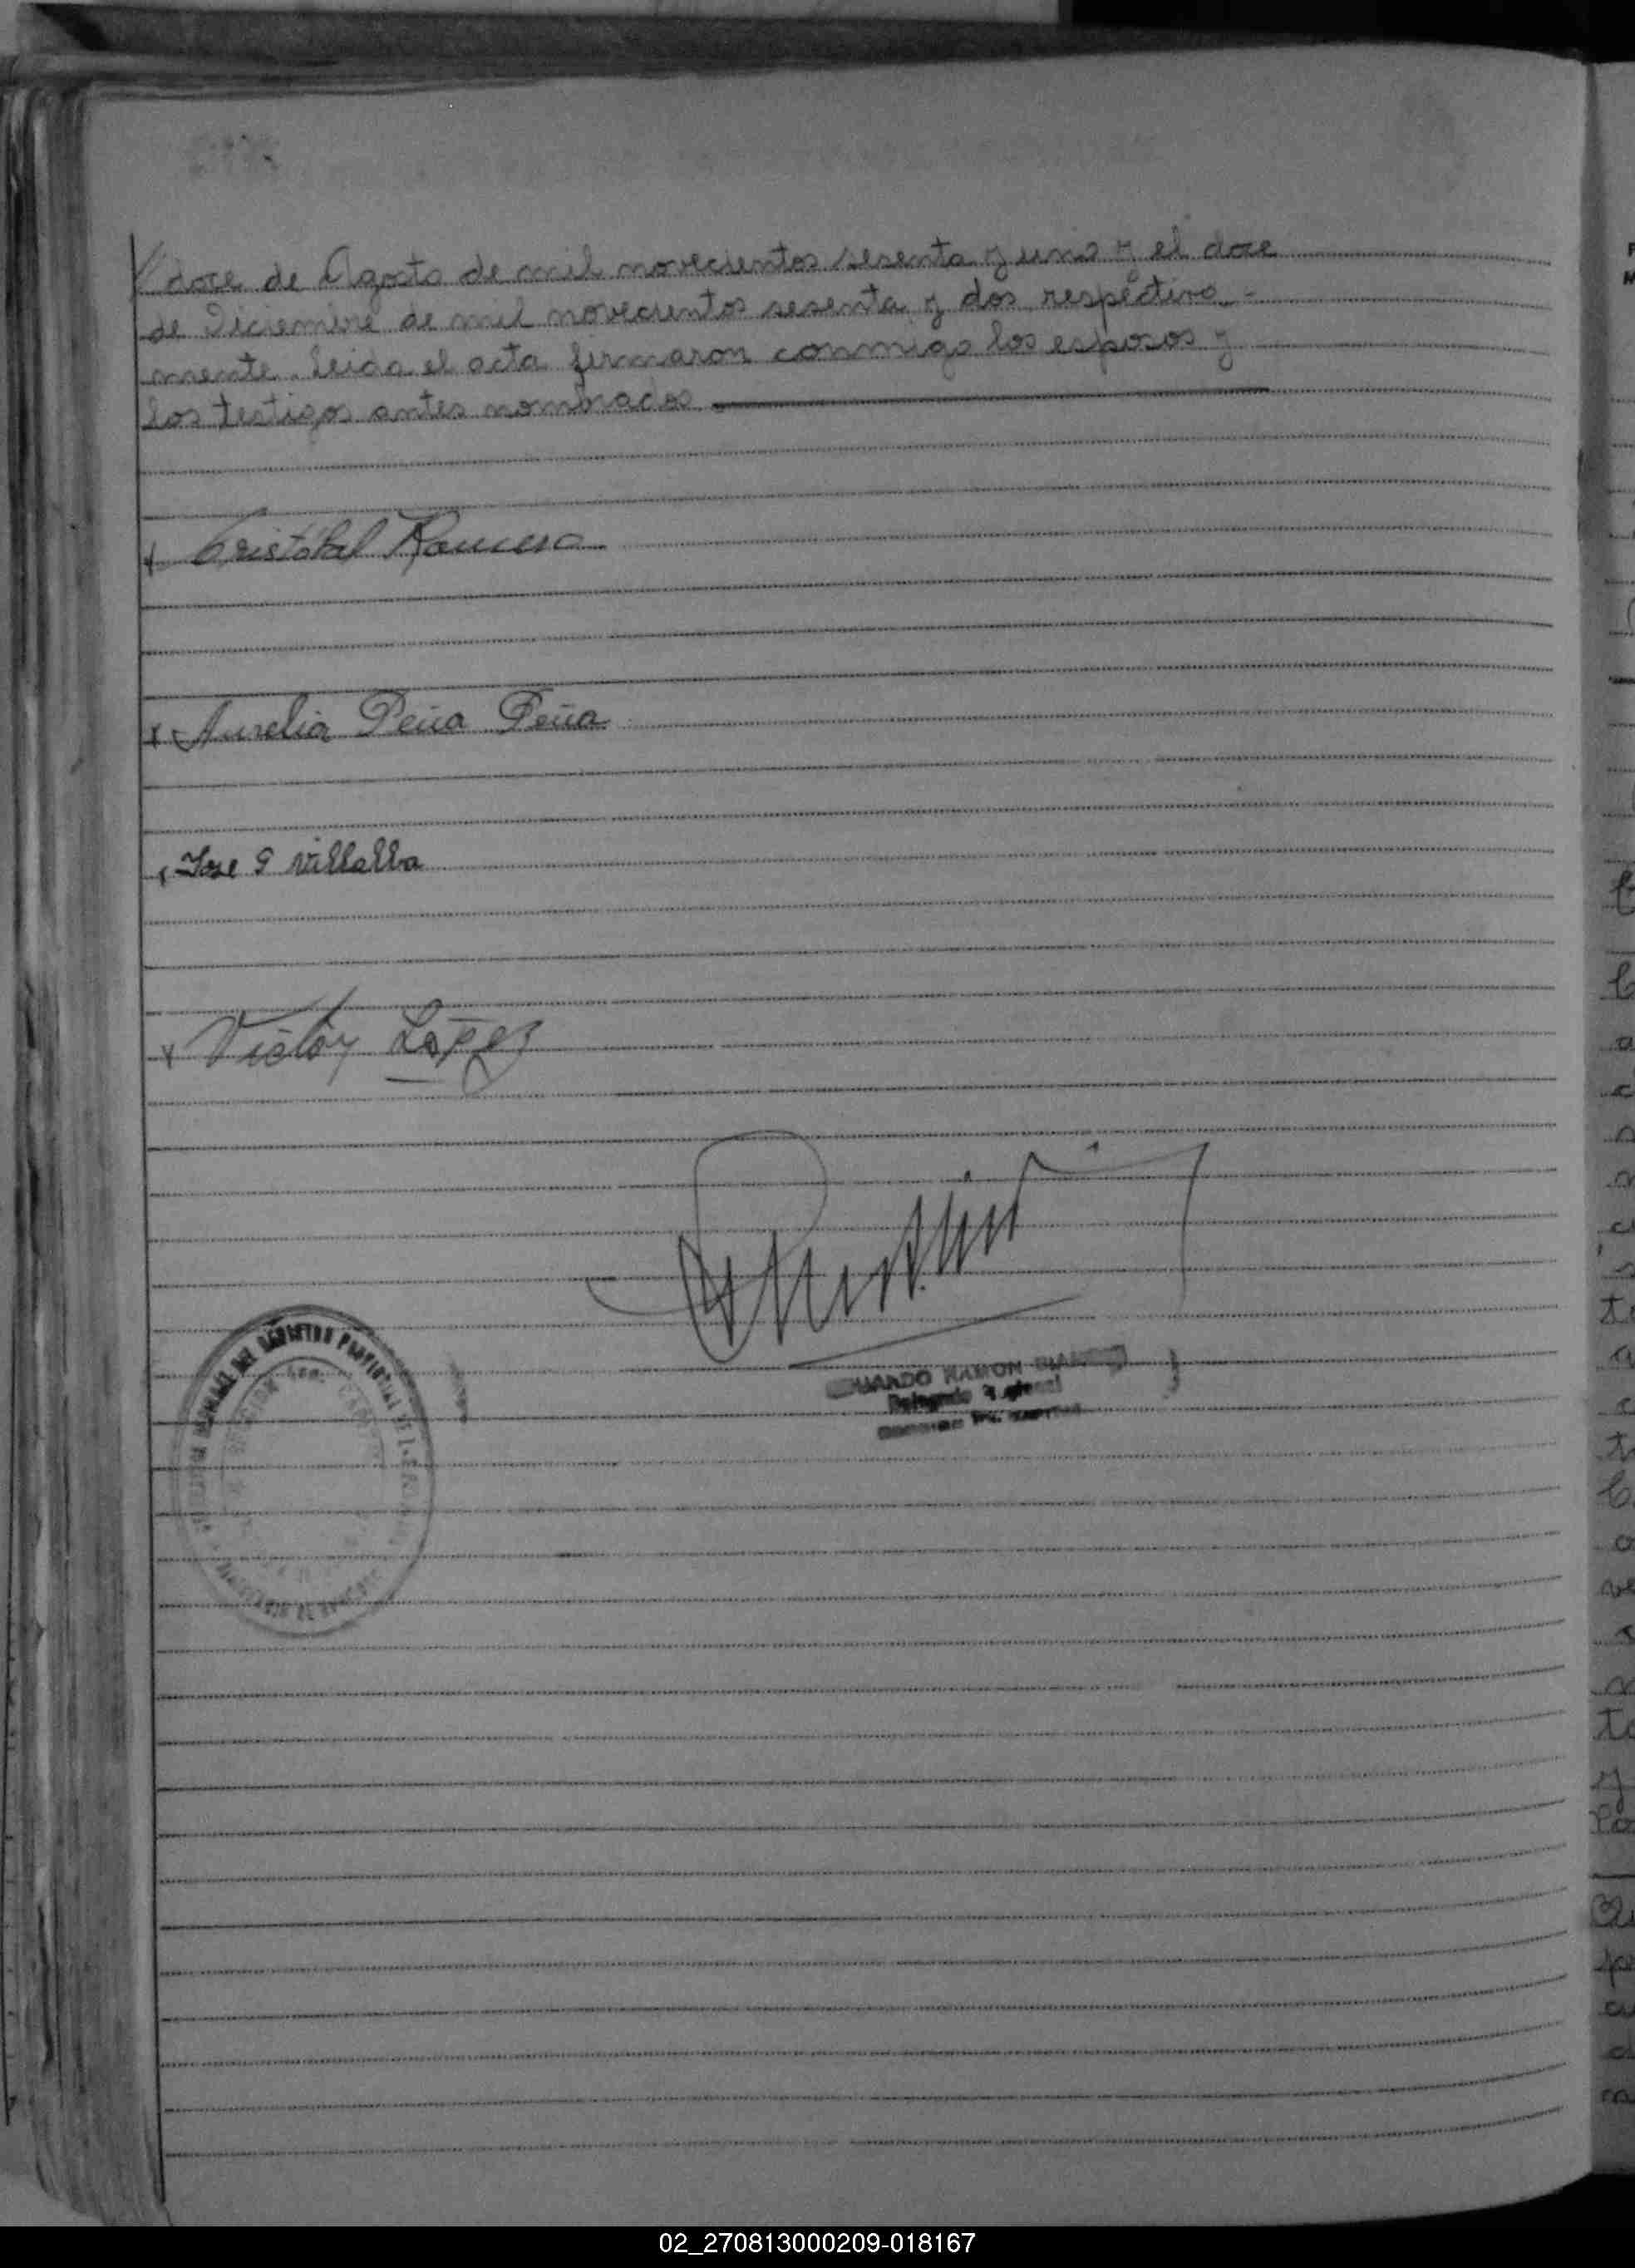 doce de Agosto de mil novecientos sesenta y uno y el doce
de Diciembre de mil novecientos sesenta y dos respectiva-
mente. Leida el acta firmaron conmigo los esposos y
los testigos antes nombrados
Cristóbal Romero
Aurelia Peña Peña
Jose G Villalba
Victor López
RAMON
02_270813000209-018167